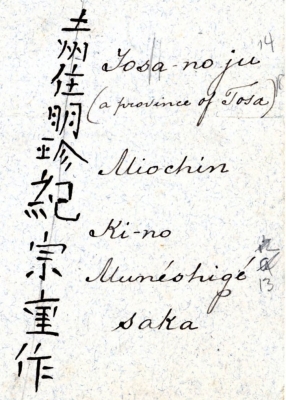 土州住明珍紀宗重作
Tosa-no ju 14
(a province of Tosa)
Miochin
Ki-no
Munéshigé
13
saka